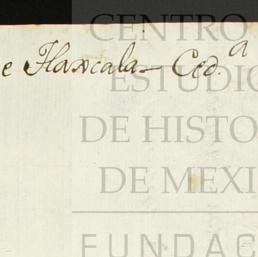 e Tlaxcala– Ced.ª
CENTRO
ESTUDIO
DE HISTO
DE MEXI
FUNDAC